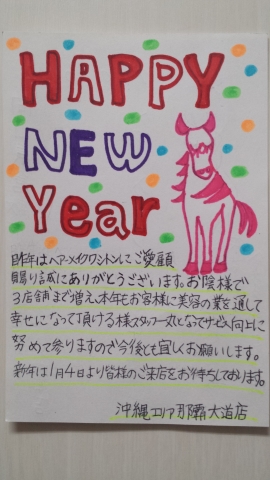 HAPPY
NEW
Year
昨年はヘアーメイクワシントンにご愛顧
賜り誠にありがとうございます。お陰様で
3店舗まで増え、本年もお客様に美容の業を通して
幸せになって頂ける様スタッフ一丸となってサービス向上に
努めて参りますので今後とも宜しくお願いします。
新年は1月4日より皆様のご来店をお待ちしております。
沖縄エリア那覇大道店